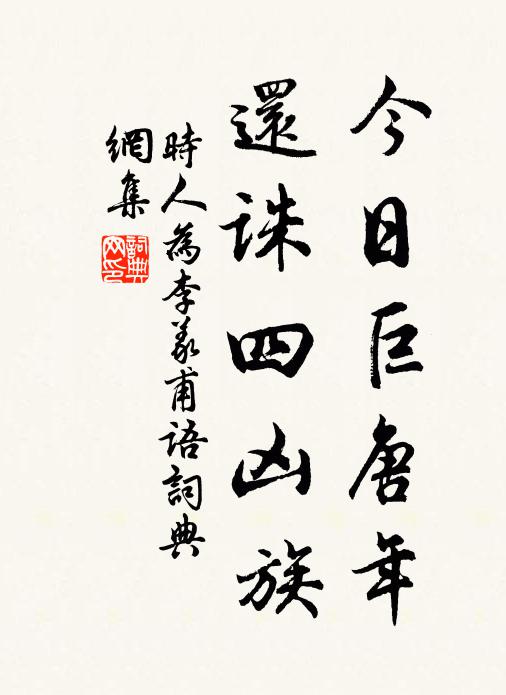 今日巨唐年
還誅四凶族
時人為李義甫語詞典
網集
詞典
网印